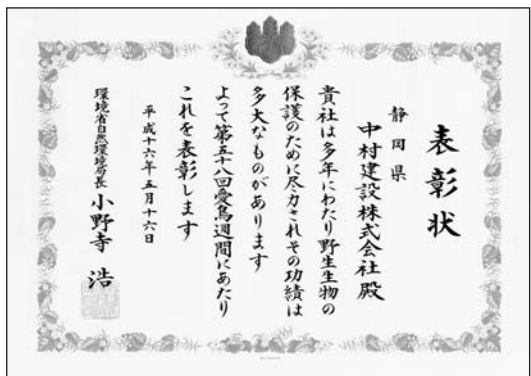 表彰状
静岡県
中村建設株式会社殿
貴社は多年にわたり野生生物の
保護のために尽力されその功績は
多大なものがあります
よって第五十八回愛鳥週間にあたり
これを表彰します
平成十六年五月十六日
環境省自然環境局長 小野寺 浩